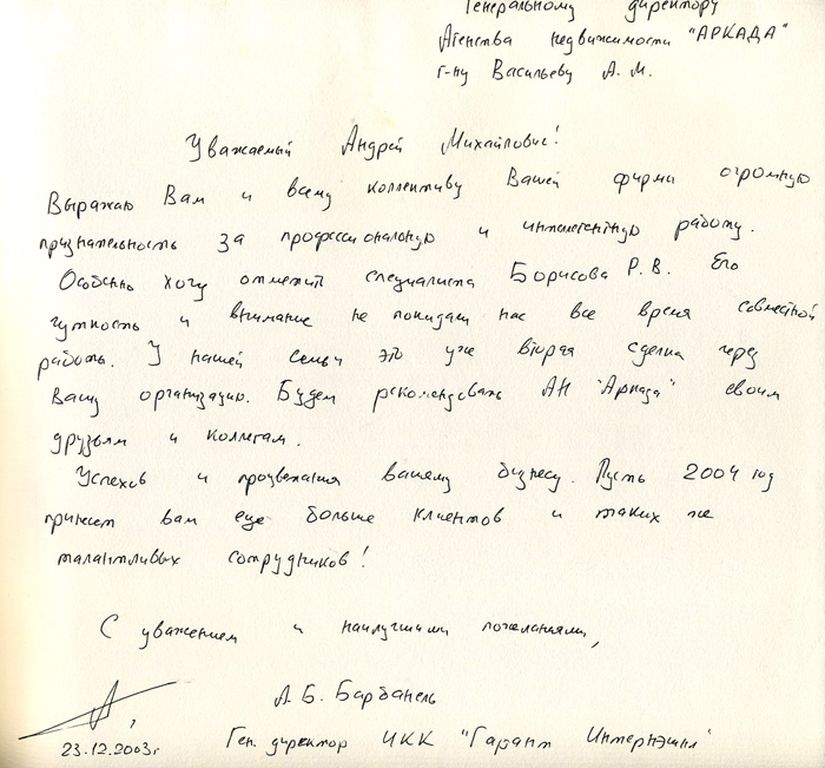 Генеральному директору
Агенства недвижимости "АРКАДА"
г-ну Васильеву А. М.
Уважаемый Андрей Михайлович!
Выражаю Вам и всему коллективу Вашей фирмы огромную
признательность за профессиональную и интелегентную работу.
Особенно хочу отметить специалиста Борисова Р. В. Его
чуткость и внимание не покидали нас все время совместной
работы. У нашей семьи это уже вторая сделка через
Вашу организацию. Будем рекомендовать АН "Аркада" своим
друзьям и коллегам.
Успехов и процветания вашему бизнесу. Пусть 2004 год
принесет вам еще больше клиентов и таких же
талантливых сотрудников!
С уважением и наилучшими пожеланиями,
А. Б. Барбанель
23.12.2003г Ген. директор ИКК "Гарант Интернэшнл"